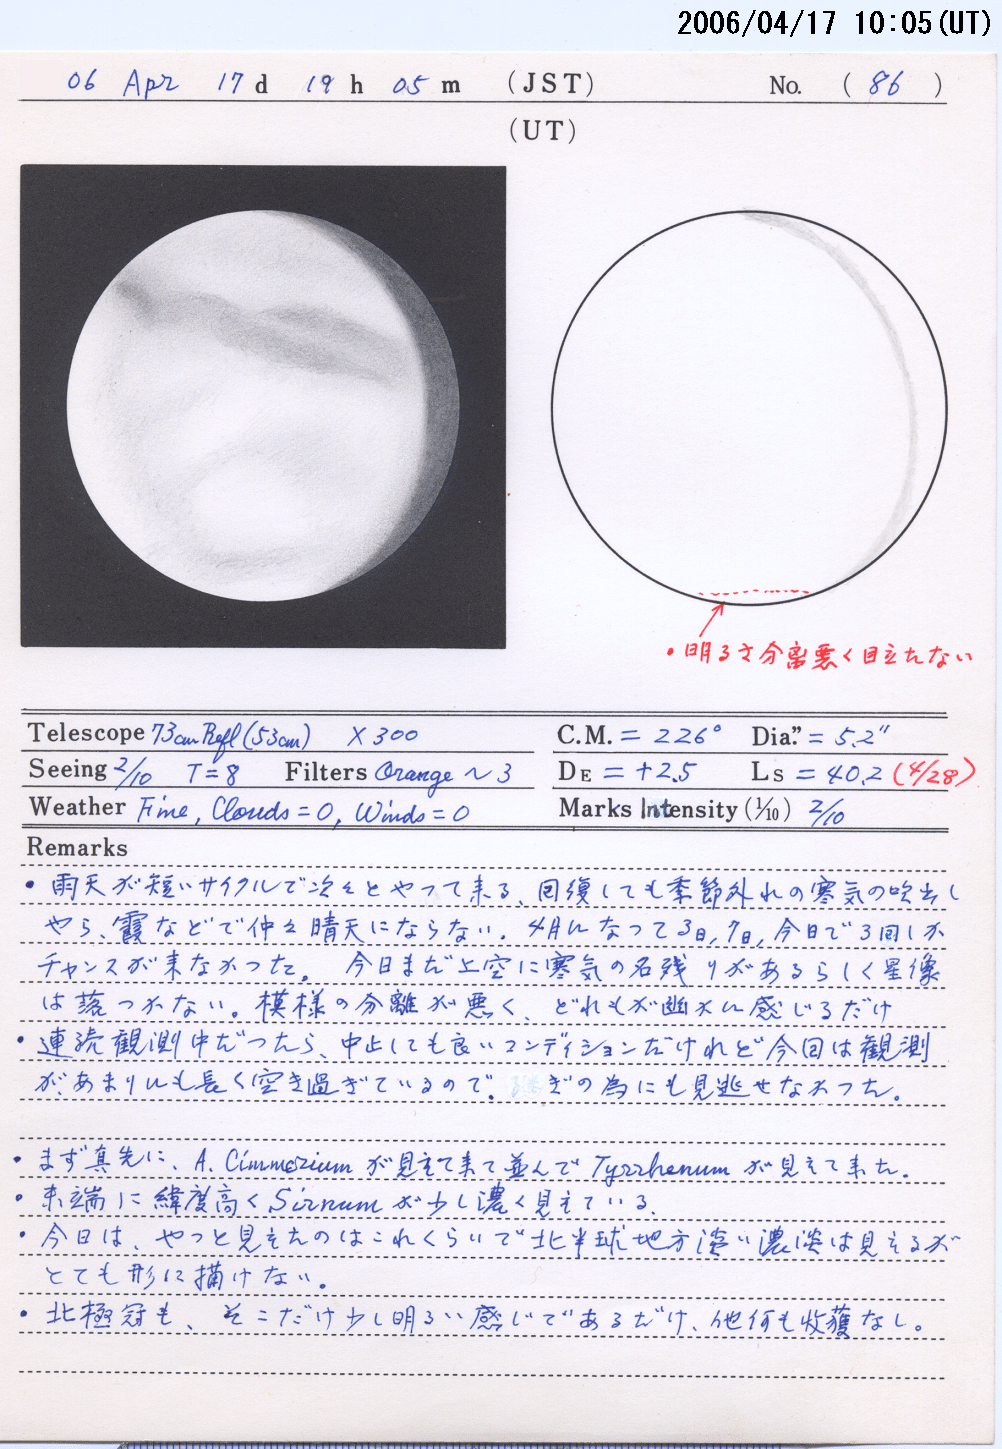 2006/04/17 10:05(UT)
06 Apr 17 d 19 h 05 m (JST) No. ( 86 )
(UT)
・明るさ分離悪く目立たない
Telescope 73cm Refl (53cm) ×300 C.M. = 226° Dia." = 5.2"
Seeing 2/10 T=8 Filters Orange ~3 DE = +2.5 Ls = 40.2 (4/28)
Weather Fine, Clouds=0, Winds=0 Marks Intensity (1/10) 2/10
Remarks
・雨天が短いサイクルで次々とやって来る、回復しても季節外れの寒気の吹出し
やら、霞などで仲々晴天にならない。4月になって3日,7日,今日で3回しか
チャンスが来なかった。 今日まだ上空に寒気の名残りがあるらしく星像
は落つかない。模様の分離が悪く、どれもが幽かに感じるだけ
・連続観測中だったら、中止しても良いコンディションだけれど今回は観測
があまりにも長く空き過ぎているので、継ぎの為にも見逃せなかった。
・まず真先に、A. Cimmerium が見えて来て並んで Tyrrhenum が見えて来た。
・末端に緯度高く Sirnum が少し濃く見えている。
・今日は、やっと見えたのはこれくらいで北半球地方淡い濃淡は見えるが
とても形に描けない。
・北極冠も、そこだけ少し明るい感じであるだけ、他何も収獲なし。